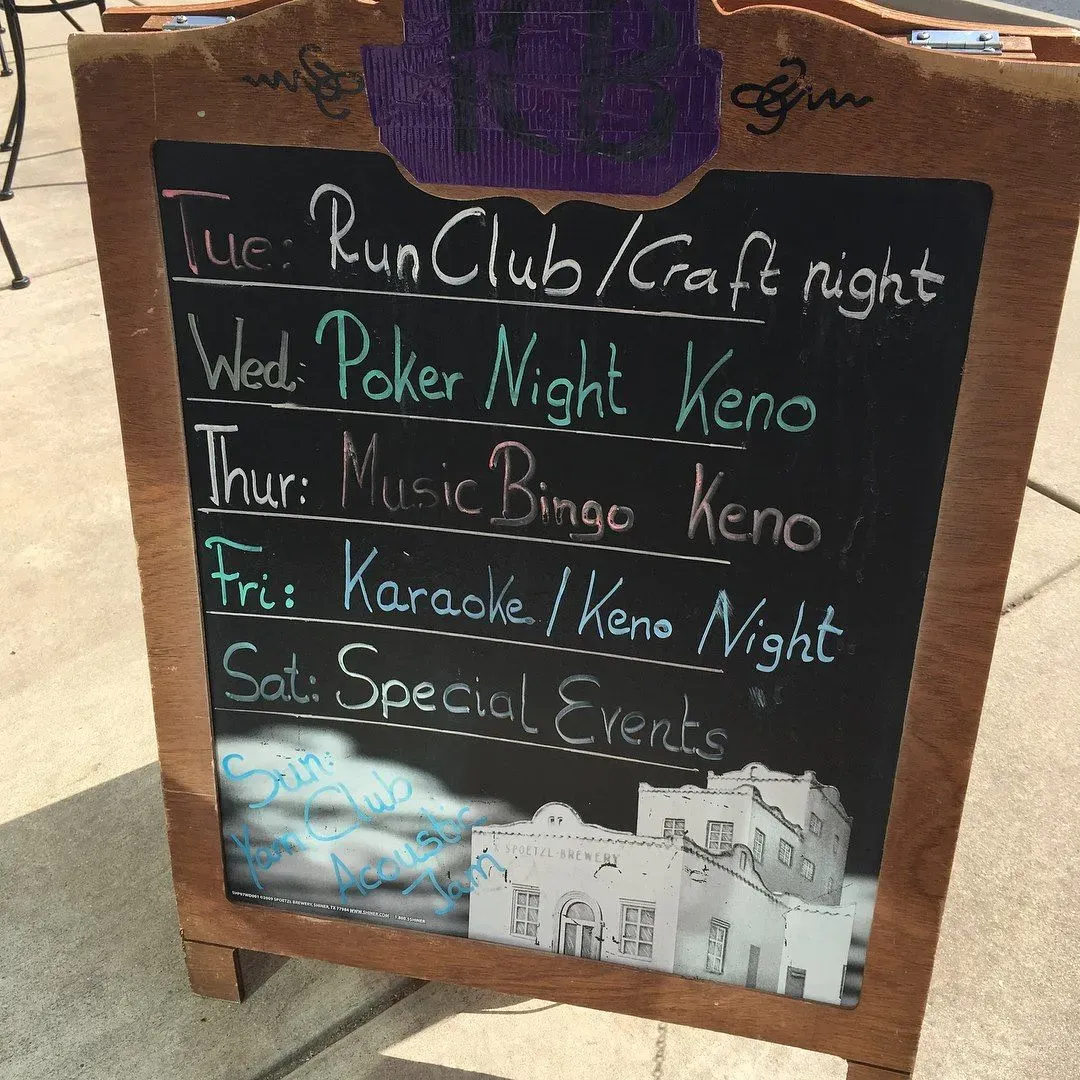 KB
Tue: Run Club/Craft night
Wed: Poker Night Keno
Thur: Music Bingo Keno
Fri: Karaoke/Keno Night
Sat: Special Events
Sun:
Yam Club
Acoustic
Jam
SPOETZL-BREWERY
©2009 SPOETZL BREWERY, SHINER, TX 77984 WWW.SHINER.COM